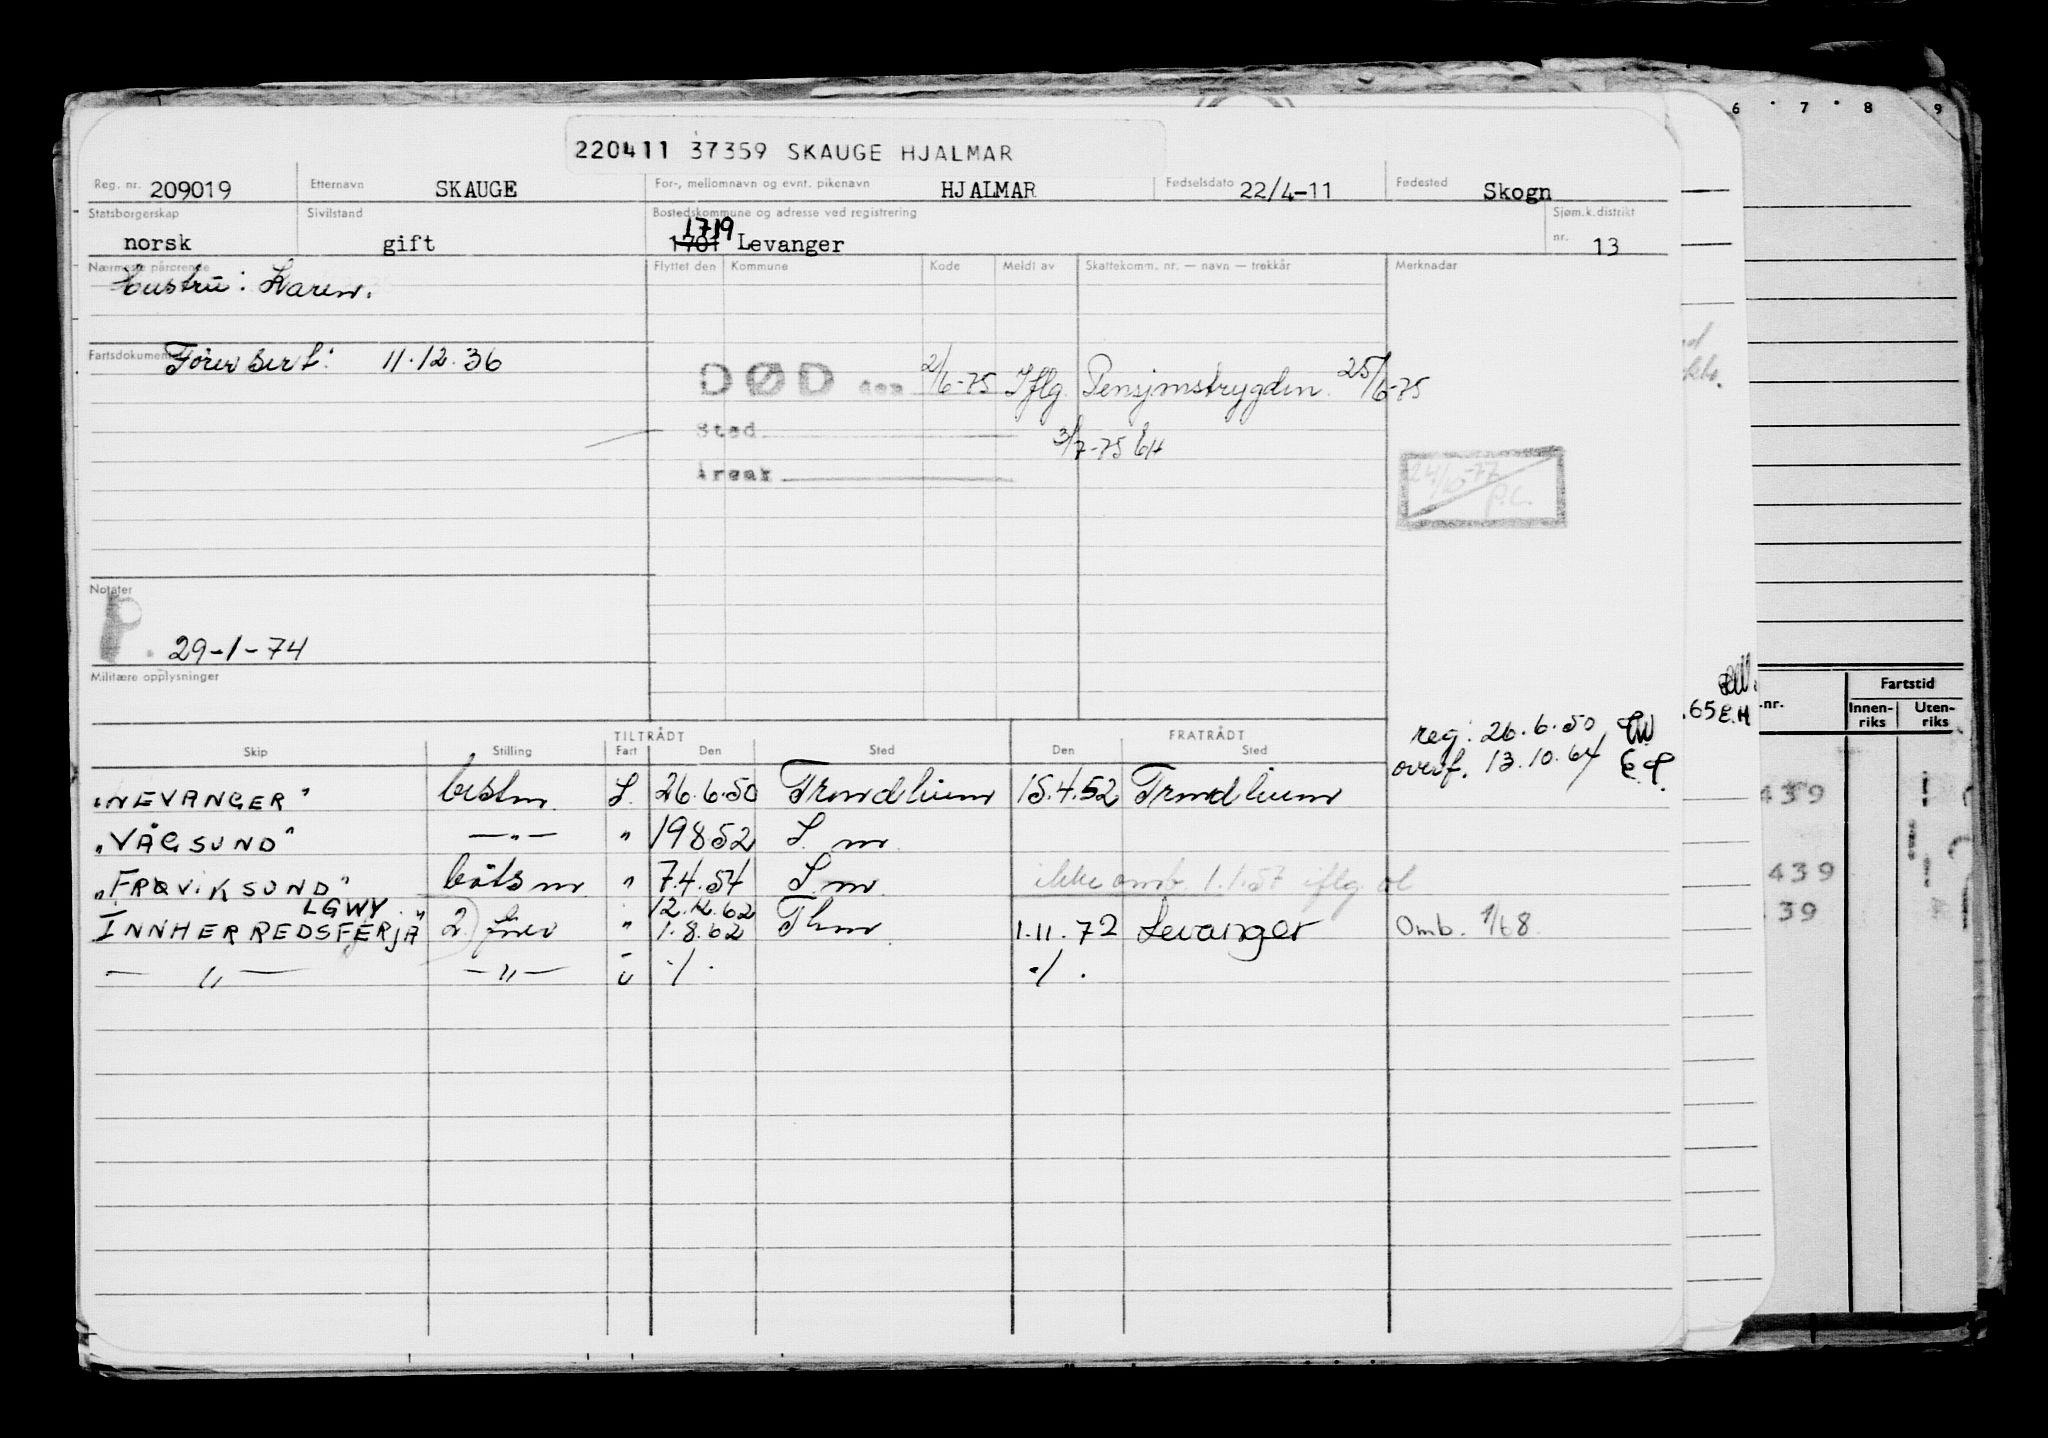 6 · 7 · 8 9
220411 37359 SKAUGE HJALMAR
Reg. nr. 209019 Etternavn SKAUGE For-, mellomnavn og evnt. pikenavn HJALMAR Fødselsdato 22/4-11 Fødested Skogn
Statsborgerskap Sivilstand Bostedskommune og adresse ved registrering Sjøm.k.distrikt
1719
norsk gift 1701 Levanger nr. 13
Nærmeste pårørende Flyttet den Kommune Kode Meldt av Skattekomm. nr. — navn — trekkår Merknader
Hustru: Karen.
Fartsdokument Förer sert: 11.12.36
DØD den 2/6-75 Iflg. Pensjonstrygden 25/6-75
Sted 3/7-75 EH
Årsak
24/10-77
P.C.
Notater
P. 29-1-74
Militære opplysninger
.65 E.H
.nr. Fartstid
Innen-riks Uten-riks
reg: 26.6.50 EW
overf. 13.10.64 E.P.
TILTRÅDT FRATRÅDT
Skip Stilling Fart Den Sted Den Sted
"NEVANGER" bestm. S. 26.6.50 Trondheim 15.4.52 Trondheim 439
"VÅGSUND" —"— " 19852 S. m.
"FRØVIKSUND" båtsm " 7.4.54 S.m. ikke omb. 1.1.57 iflg. al 439
LGWY 12.12.62
INNHERREDSFERJÅ" 2) fører " 1.8.62 Thm. 1.11.72 Levanger Omb. 1/68. 39
— " — —"— ū ./. ./.